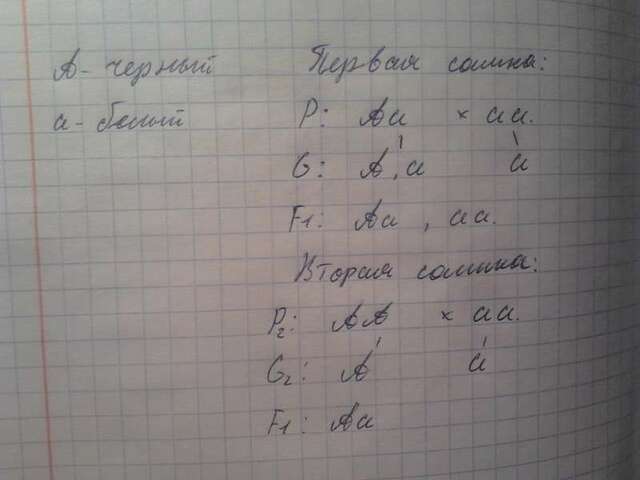 А - черный
а - белый
Первая самка:
P: Аа × аа.
G: А, а а
F1: Аа , аа.
Вторая самка:
P2: АА × аа.
G2: А а
F1: Аа